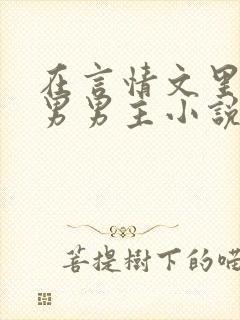 在言情文里
男男主小說
菩提樹下的喵